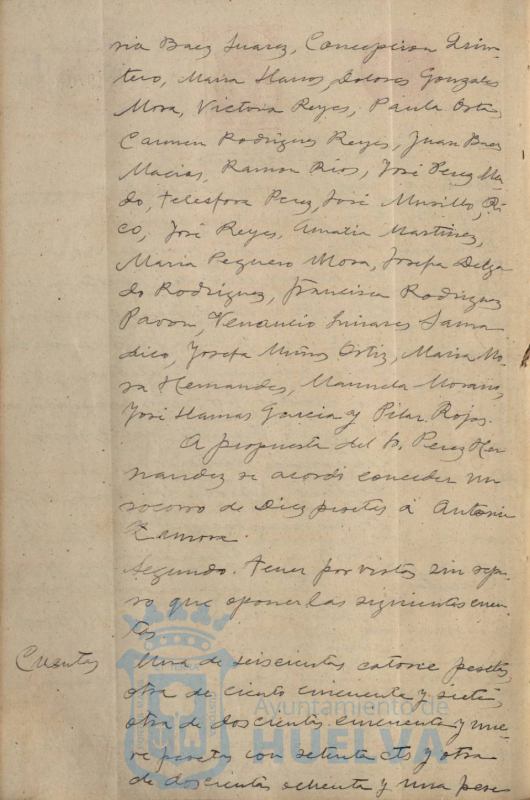 ria Baez Suarez, Concepcion Quin-
tero, Maria Llanos, Dolores Gonzales
Mora, Victoria Reyes, Paula Orta,
Carmen Rodrigues Reyes, Juan Baez
Macias, Ramon Rios, José Perez
do, Telesfora Perez, José Murillo, Ri-
co, José Reyes, Amalia Martinez,
Maria Peguero Mora, Josefa Delga
do Rodriguez, Francisca Rodriguez
Pavon, Venancio Linares Sama
dico, Josefa Muños Ortiz, Maria Mo-
ra Hernandes, Manuela Morano,
José Llamas Garcia y Pilar Rojas.
A propuesta del Sr. Perez Her
nandez se acordó conceder un
socorro de Diez pesetas á Antonio
Zamora.
Segundo. Tener por vistas sin repa-
ro que oponer las siguientes cuen-
tas
Cuentas Una de seiscientas catorce pesetas,
otra de ciento cincuenta y siete,
otra de doscientas cincuenta y nue-
ve pesetas con setenta cts y otra
de doscientas ochenta y una pese
Ayuntamiento de
HUELVA